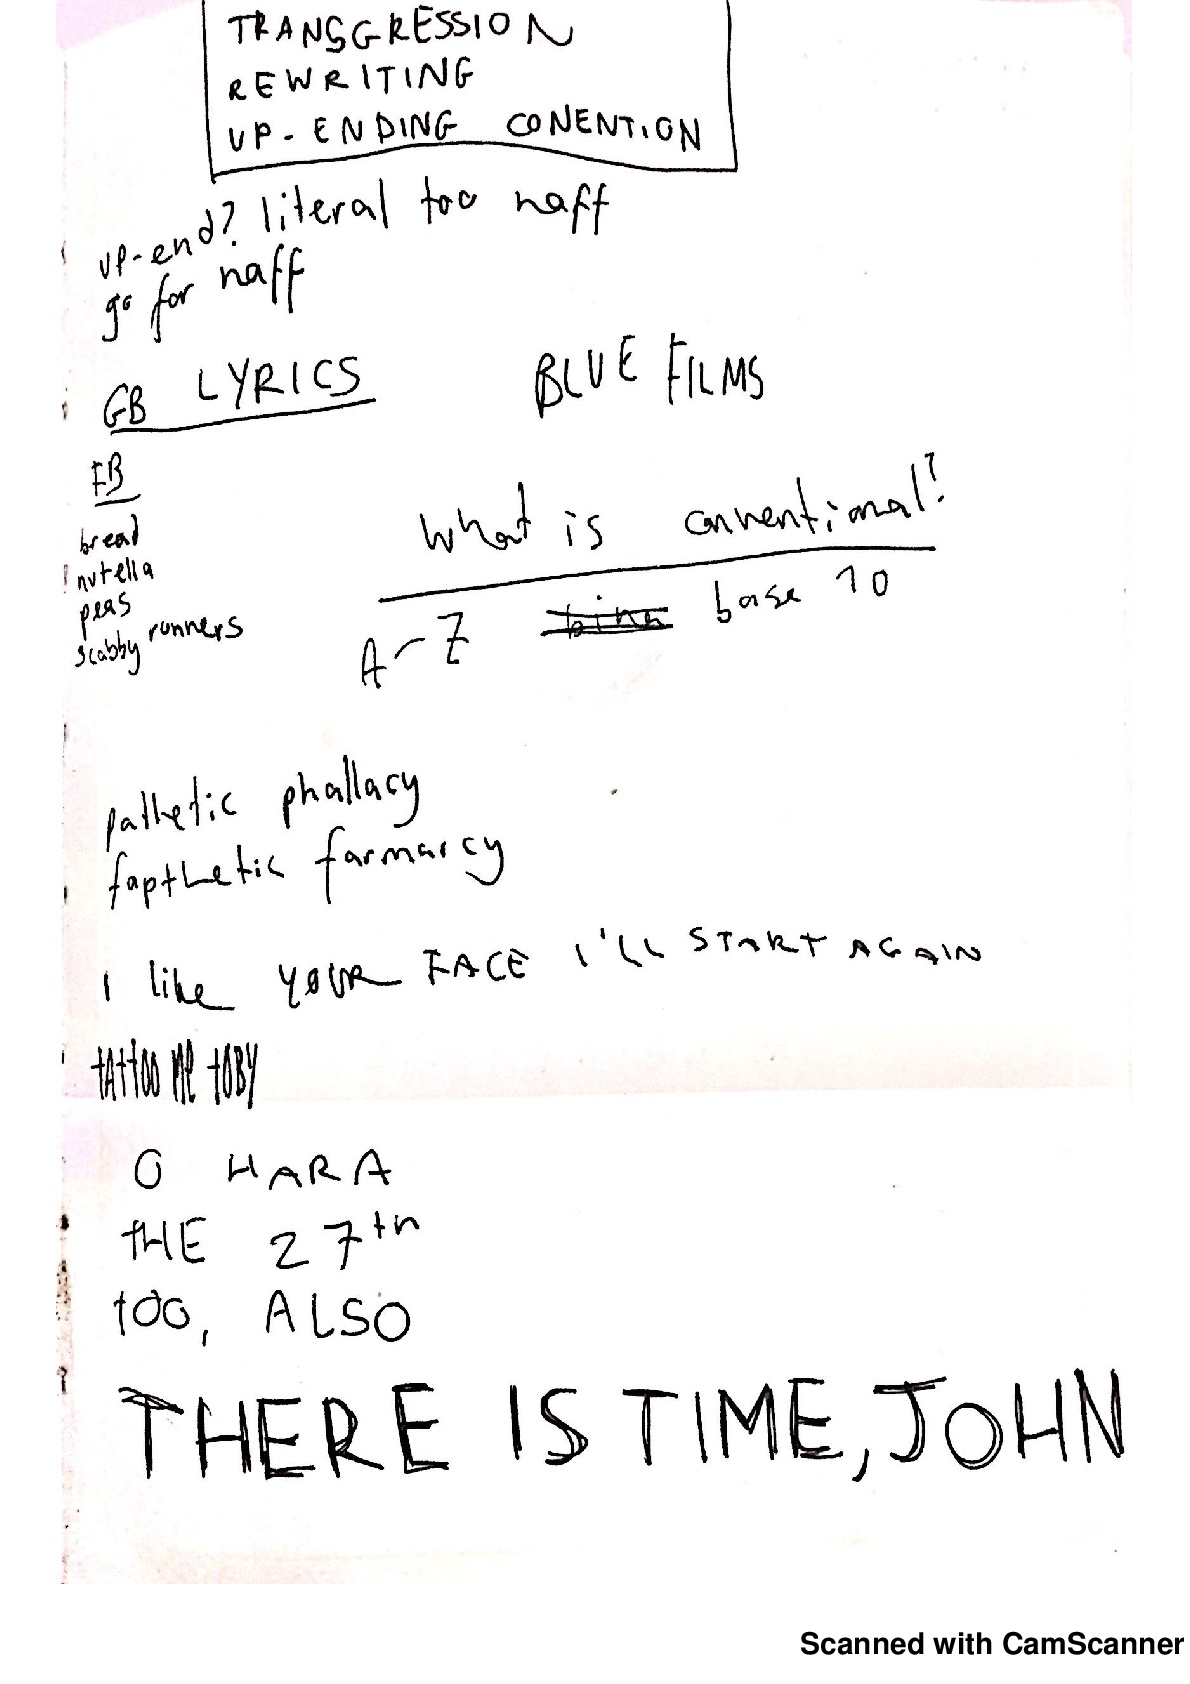 TRANSGRESSION
REWRITING
UP-ENDING CONENTION
up-end? literal too naff
go for naff
GB LYRICS
BLUE FILMS
FB
bread
nutella
peas
scabby runners
What is conventional?
A-Z base 10
pathetic phallacy
fapthetic farmarcy
I like YOUR FACE I'LL START AGAIN
tATtOO ME tOBY
O HARA
tHE 27th
tOO, ALSO
THERE IS TIME, JOHN
Scanned with CamScanner